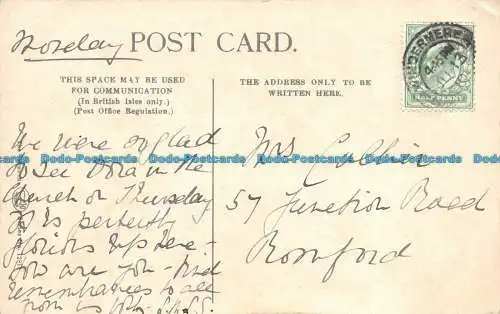 Monday
POST CARD.
THIS SPACE MAY BE USED
FOR COMMUNICATION
(In British Isles only.)
(Post Office Regulation.)
THE ADDRESS ONLY TO BE
WRITTEN HERE.
WINDERMERE
HALF PENNY
We were so glad
to see Dora in the
Church on Thursday
It is perfectly
glorious up here -
How are you - kind
remembrances to all
from us both
Mrs
57 Junction Road
Romford
Dodo-Postcards Dodo-Postcards Dodo-Postcards Dodo-Postcards